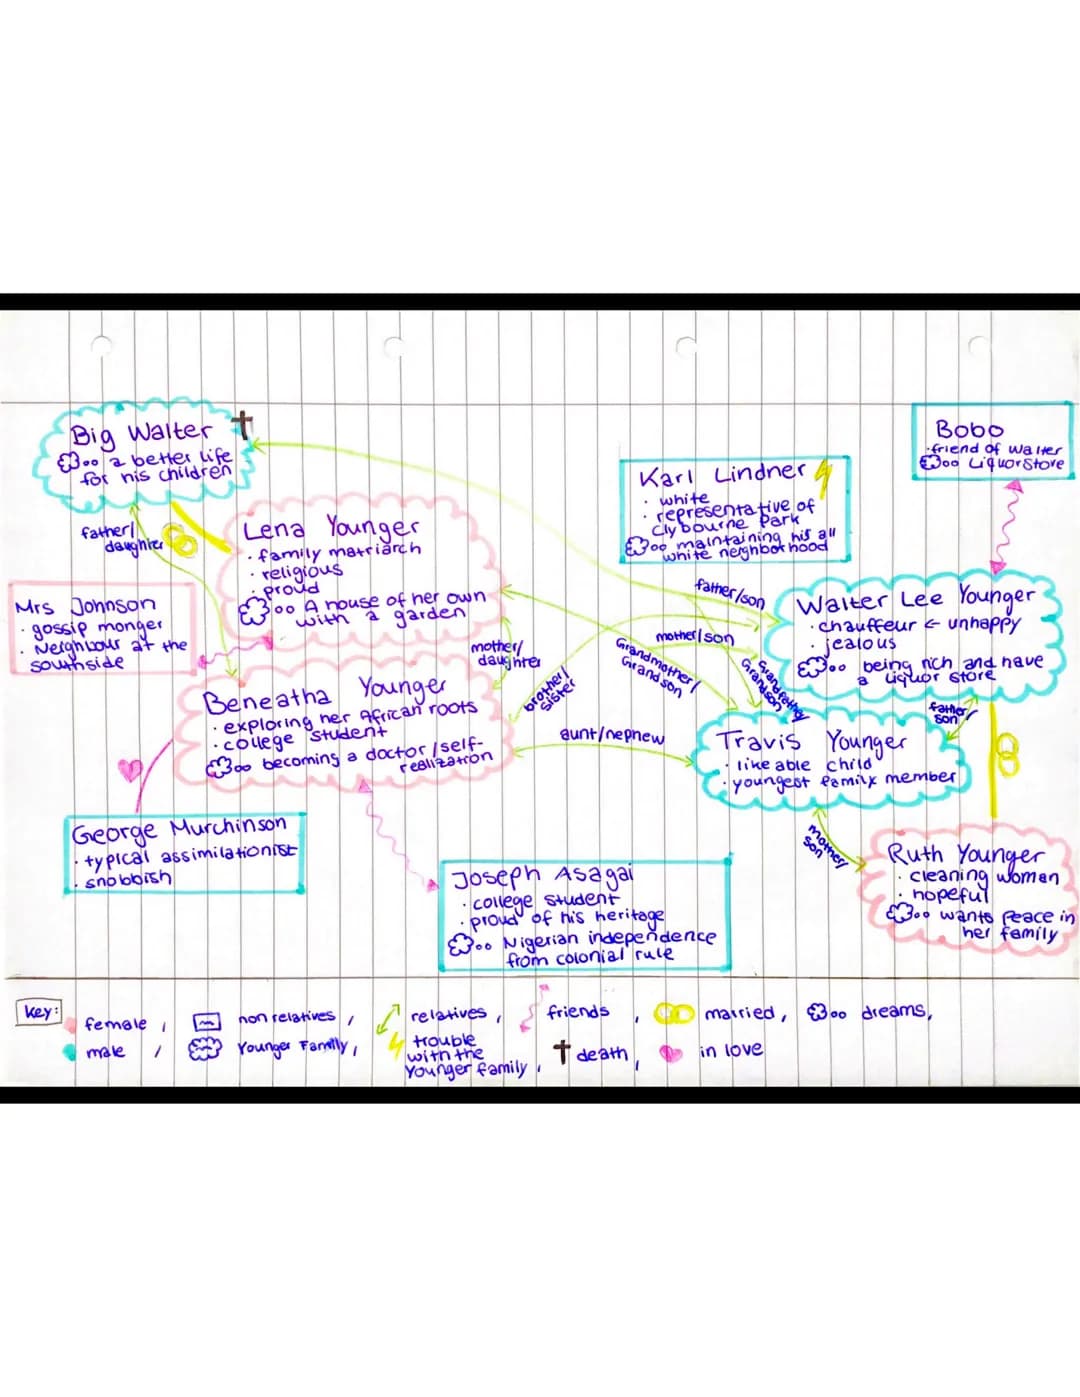 Big Walter
a better life
for his children
Bobo
friend of walter
Liquor Store
Karl Lindner
· white
· representative of
Clybourne Park
maintaining his all
white neighborhood
father/
daughter
Lena Younger
· family matriarch
· religious
· proud
A house of her own
with a garden
Mrs Johnson
· gossip monger
· Neighbour at the
southside
father/son
mother/son
Grandmother/
Grandson
Grandfather/
Grandson
mother/
daughter
brother/
sister
aunt/nephew
Walter Lee Younger
· chauffeur ← unhappy
· jealous
being rich and have
a liquor store
father/
son
Beneatha Younger
· exploring her African roots
· college student
becoming a doctor/self-
realization
Travis Younger
· likeable child
· youngest family member
mother/
son
George Murchinson
· typical assimilationist
· snobbish
Joseph Asagai
· college student
· proud of his heritage
Nigerian independence
from colonial rule
Ruth Younger
· cleaning woman
· hopeful
wants peace in
her family
key:
female,
male,
non relatives,
Younger Family,
relatives,
trouble
with the
Younger family,
friends,
death,
married,
in love
dreams,